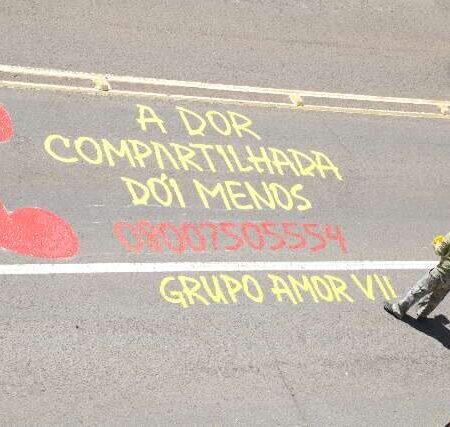 A DOR
COMPARTILHADA
DÓI MENOS
08007505554
GRUPO AMOR VII